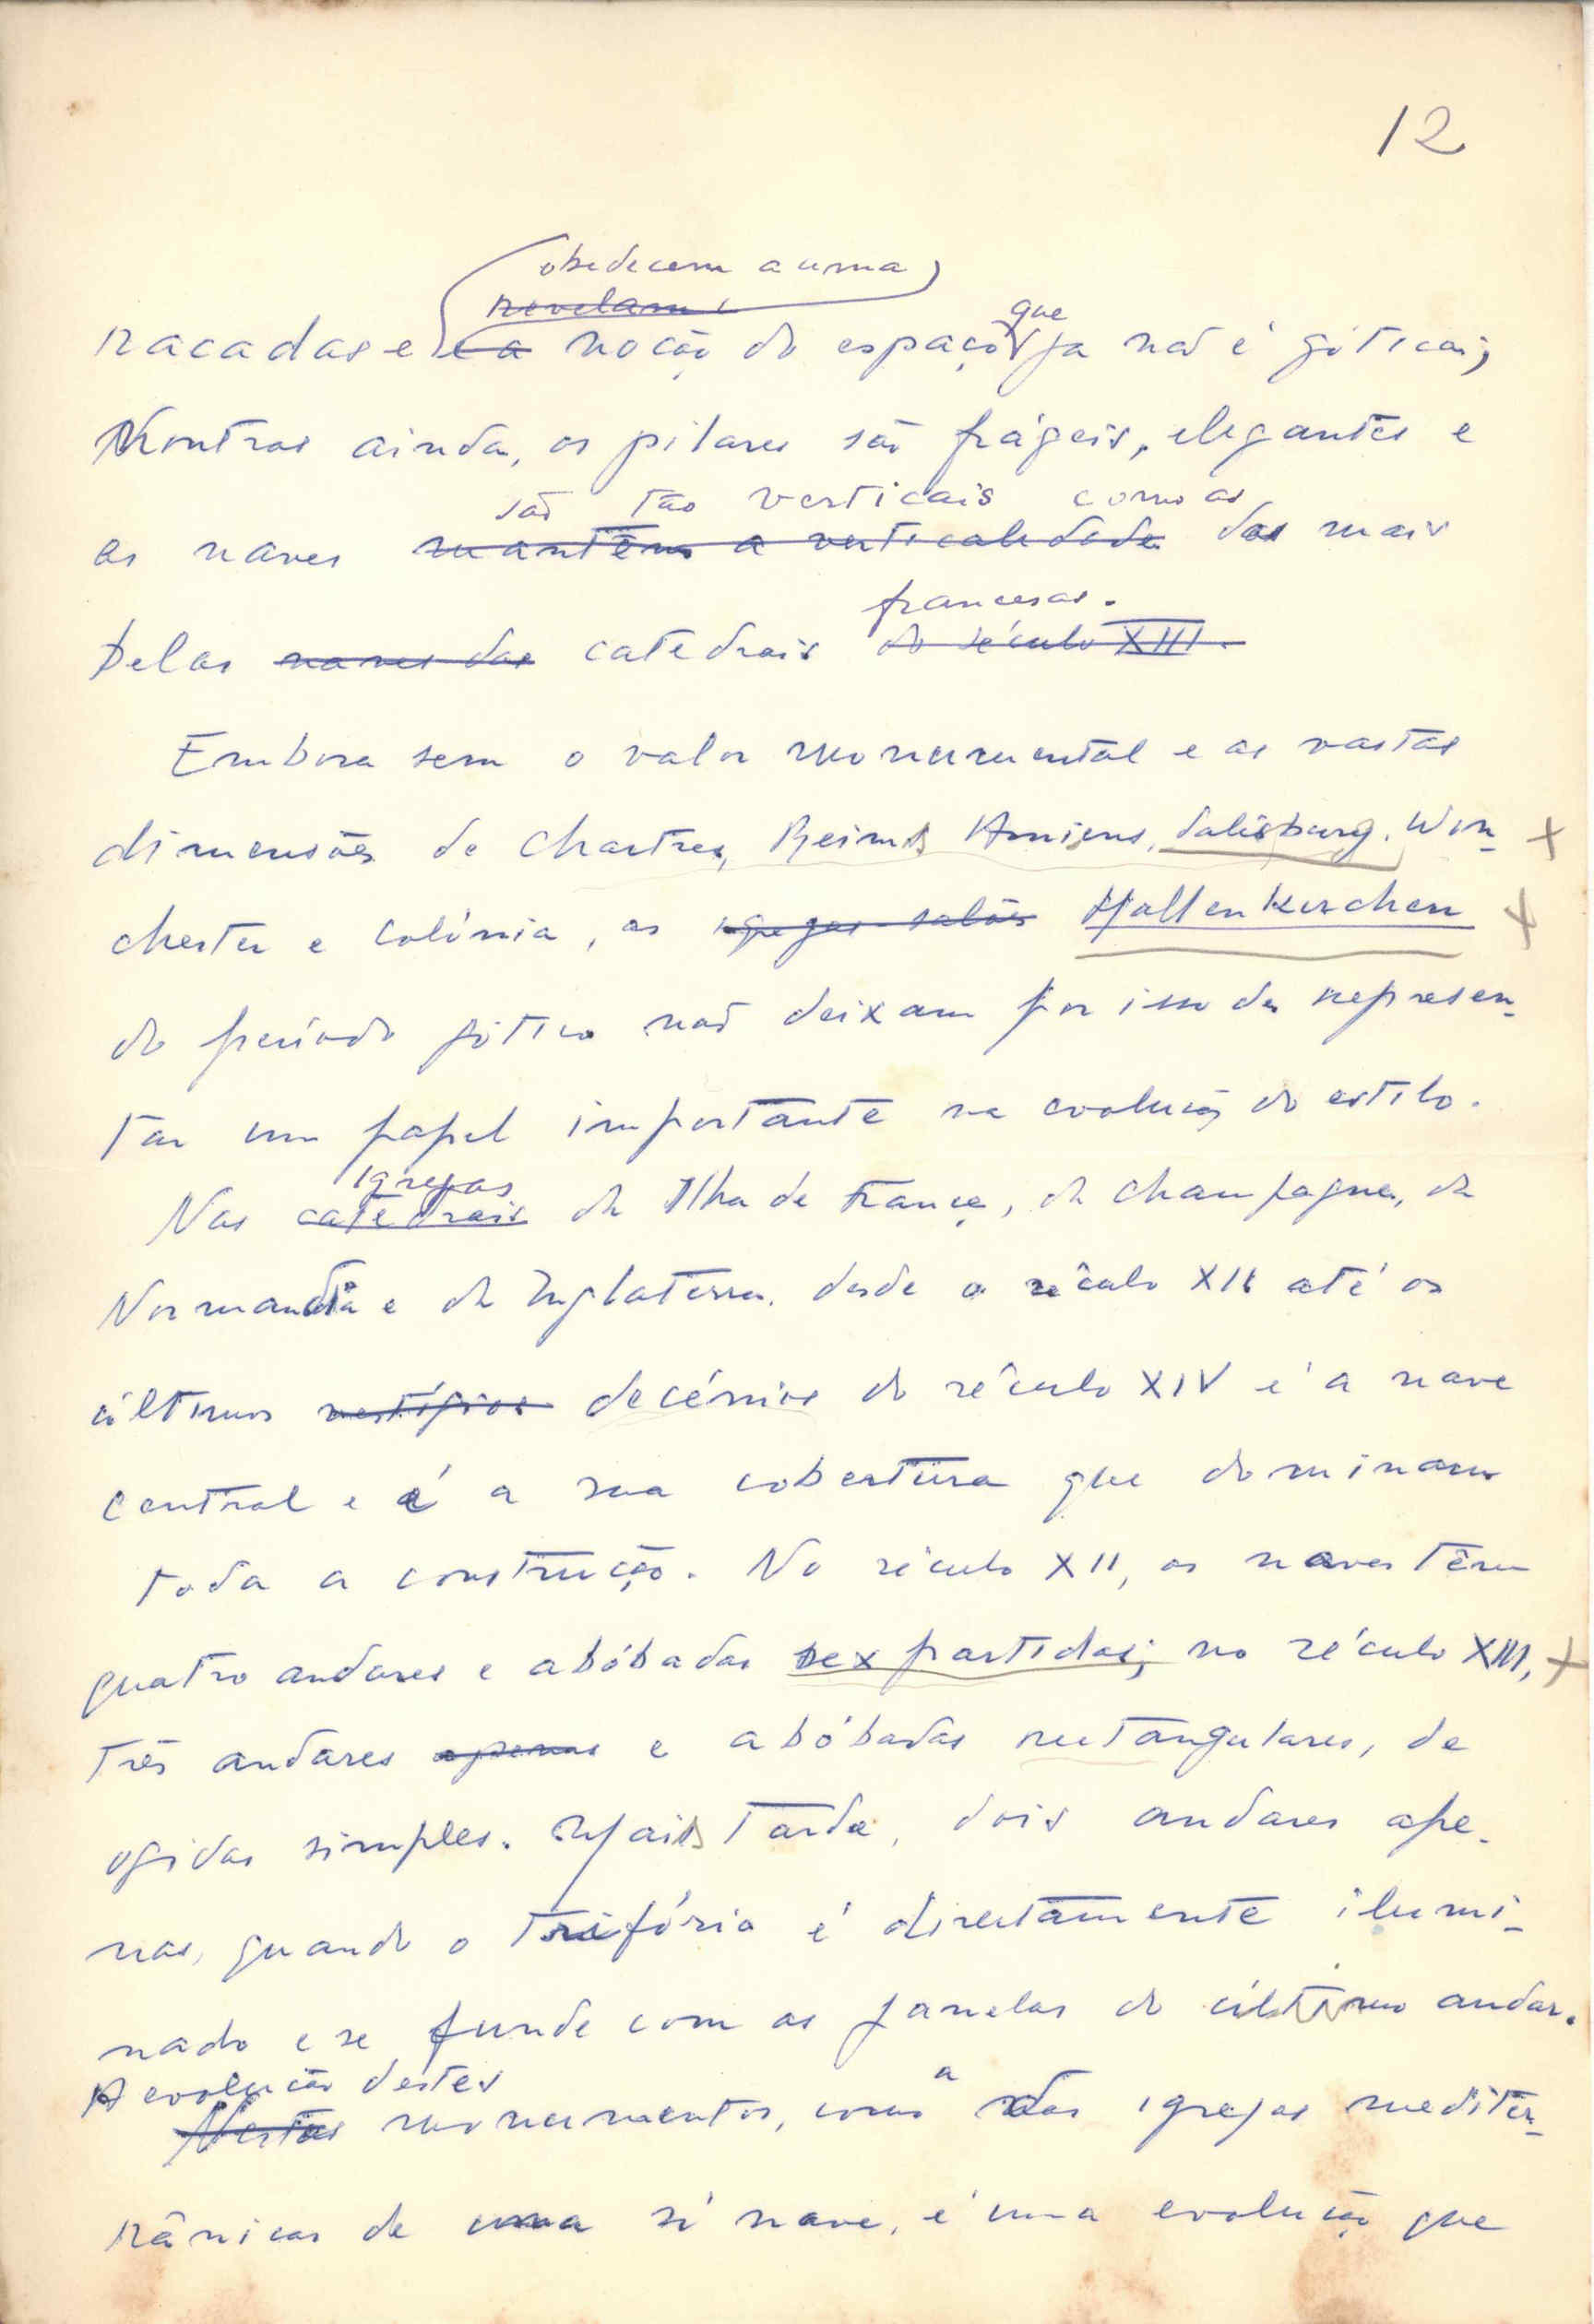 12
obedecem a uma
revelam
racadas e e a noção do espaço que já não é gótica;
Noutras ainda, os pilares são frágeis, elegantes e
são tão verticais como as
as naves mantêm a verticalidade das mais
francesas.
belas naves das catedrais do século XIII.
Embora sem o valor monumental e as vastas
dimensões de Chartres, Reims, Amiens, Salisburg, Win-
chester e Colónia, as igrejas salões Hallenkirchen
do período gótico não deixam por isso de represen-
tar um papel importante na evolução do estilo.
igrejas
Nas catedrais da Ilha de França, da Champagne, da
Normandia e da Inglaterra, desde o século XII até os
últimos vestígios decénios do século XIV é a nave
central e é a sua cobertura que dominam
toda a construção. No século XII, as naves têm
quatro andares e abóbadas sexpartidas; no século XIII,
três andares apenas e abóbadas rectangulares, de
ogivas simples. Mais tarde, dois andares ape-
nas, quando o trifório é directamente ilumi-
nado e se funde com as janelas do último andar.
A evolução destes
Nestas monumentos, como a das igrejas mediter-
rânicas de uma só nave, é uma evolução que